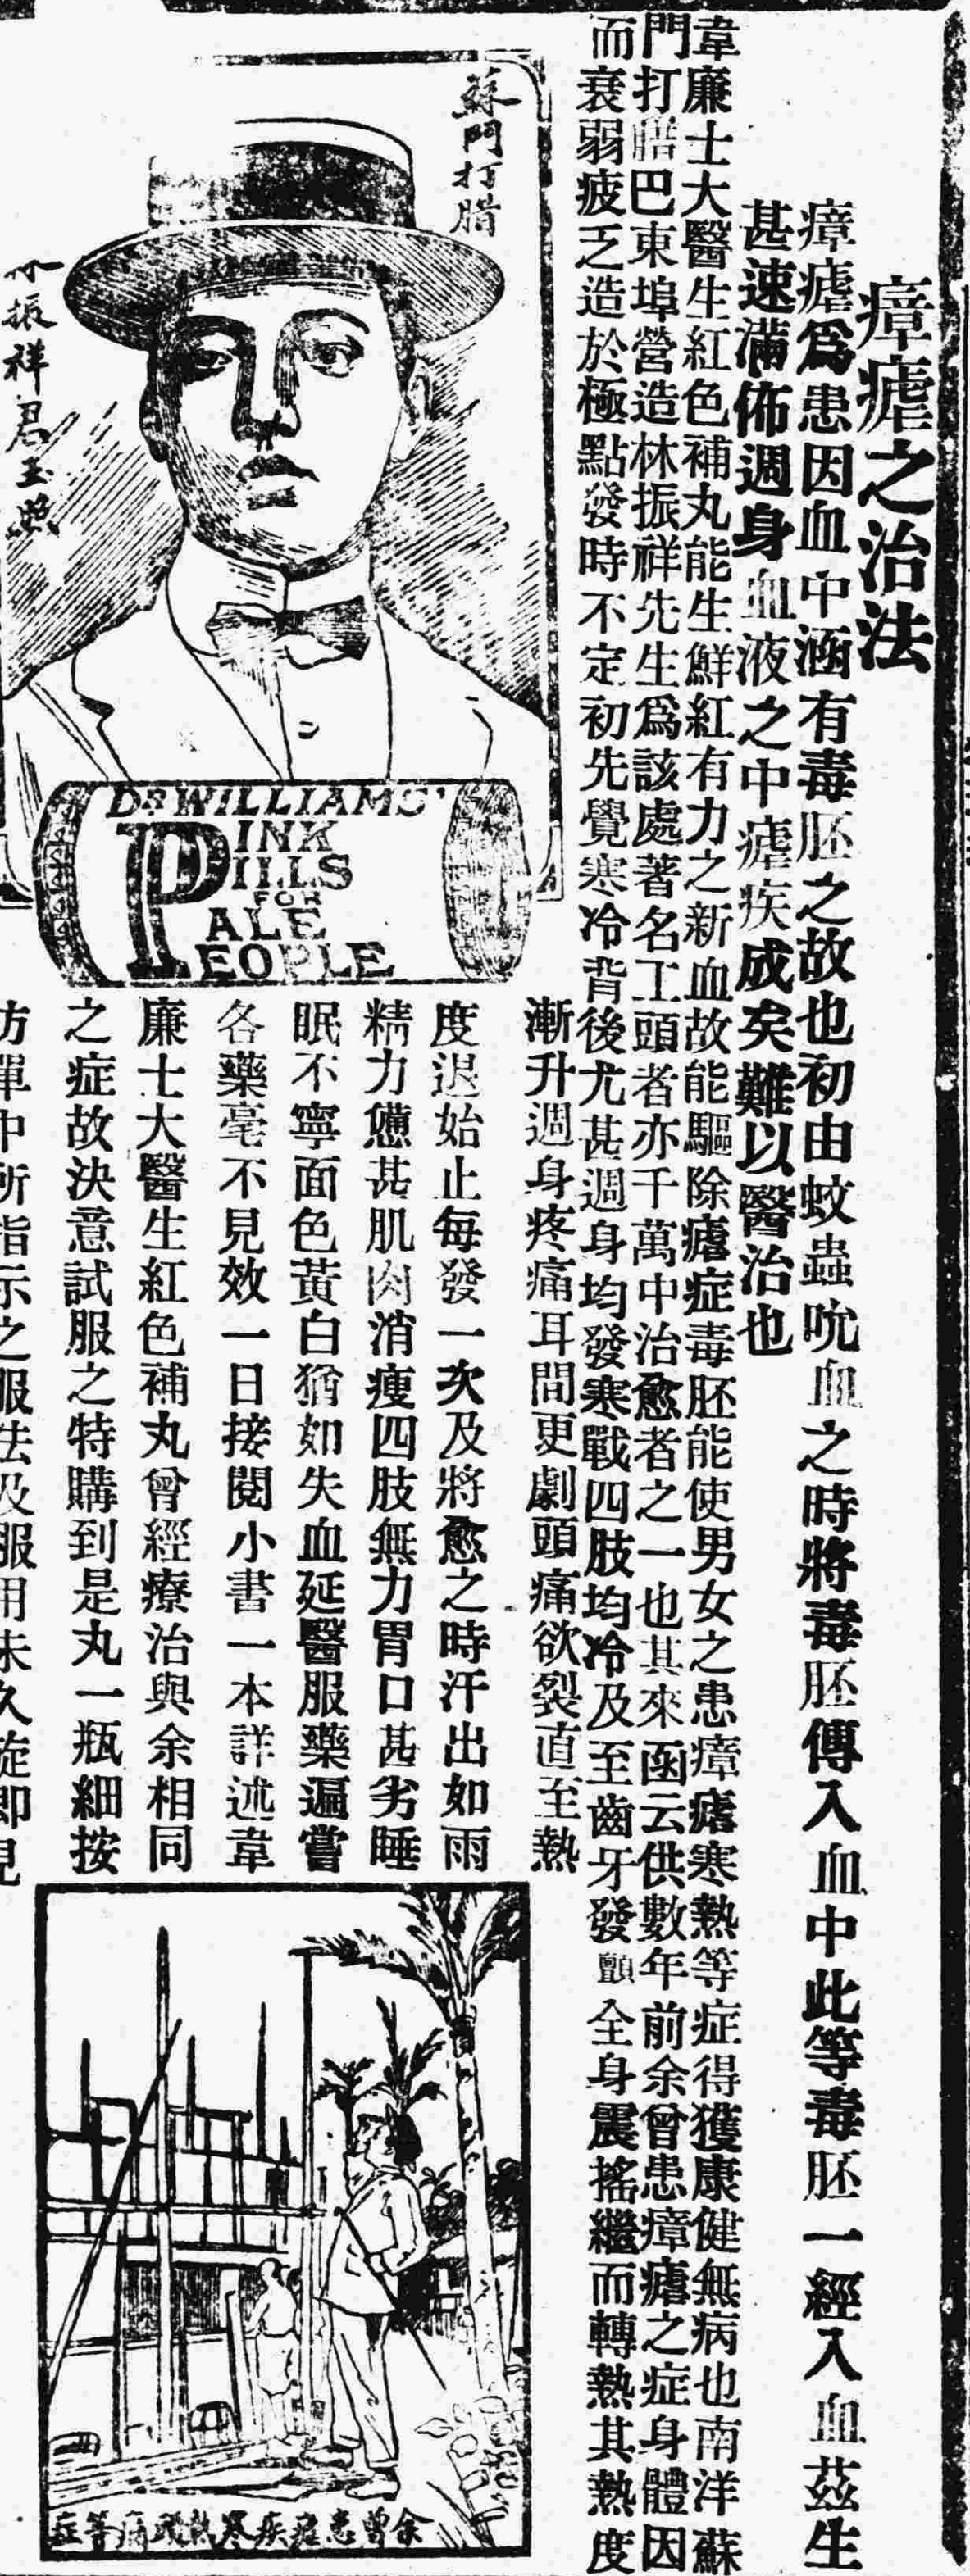 瘴瘧之治法
瘴瘧爲患因血中涵有毒胚之故也初由蚊蟲吮血之時將毒胚傳入血中此等毒胚一經入血茲生
甚速滿佈週身血液之中瘧疾成矣難以醫治也
韋廉士大醫生紅色補丸能生鮮紅有力之新血故能驅除瘧症毒胚能使男女之患瘴瘧寒熱等症得獲康健無病也南洋蘇
門打腊巴東埠營造林振祥先生爲該處著名工頭者亦千萬中治愈者之一也其來函云供數年前余曾患瘴瘧之症身體因
而衰弱疲乏造於極點發時不定初先覺寒冷背後尤甚週身均發寒戰四肢均冷及至齒牙發顫全身震搖繼而轉熱其熱度
漸升週身疼痛耳間更劇頭痛欲裂直至熱
度退始止每發一次及將愈之時汗出如雨
精力憊甚肌肉消瘦四肢無力胃口甚劣睡
眠不寧面色黃白猶如失血延醫服藥遍嘗
各藥毫不見效一日接閱小書一本詳述韋
廉士大醫生紅色補丸曾經療治與余相同
之症故決意試服之特購到是丸一瓶細按
方單中所指示之服法及服用未久旋即見
蘇門打腊
林振祥君玉照
DR WILLIAMS'
PINK
PILLS
FOR
PALE
PEOPLE
余曾患瘧疾寒熱頭痛等症